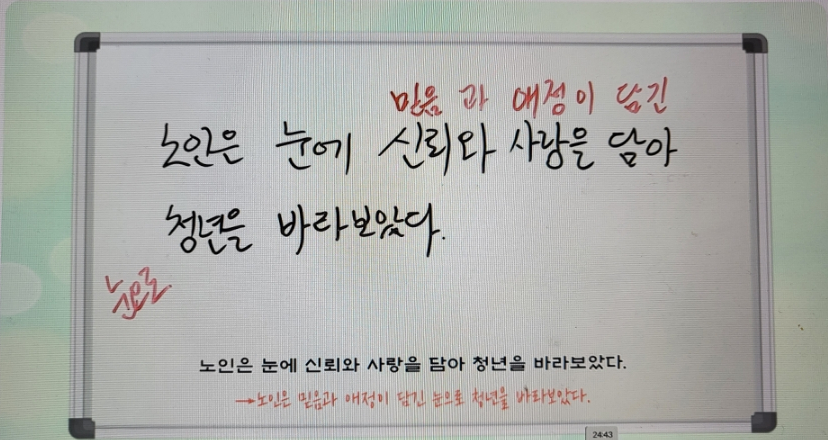 믿음과 애정이 담긴
노인은 눈에 신뢰와 사랑을 담아
청년을 바라보았다.
눈으로
노인은 눈에 신뢰와 사랑을 담아 청년을 바라보았다.
→노인은 믿음과 애정이 담긴 눈으로 청년을 바라보았다.
24:43